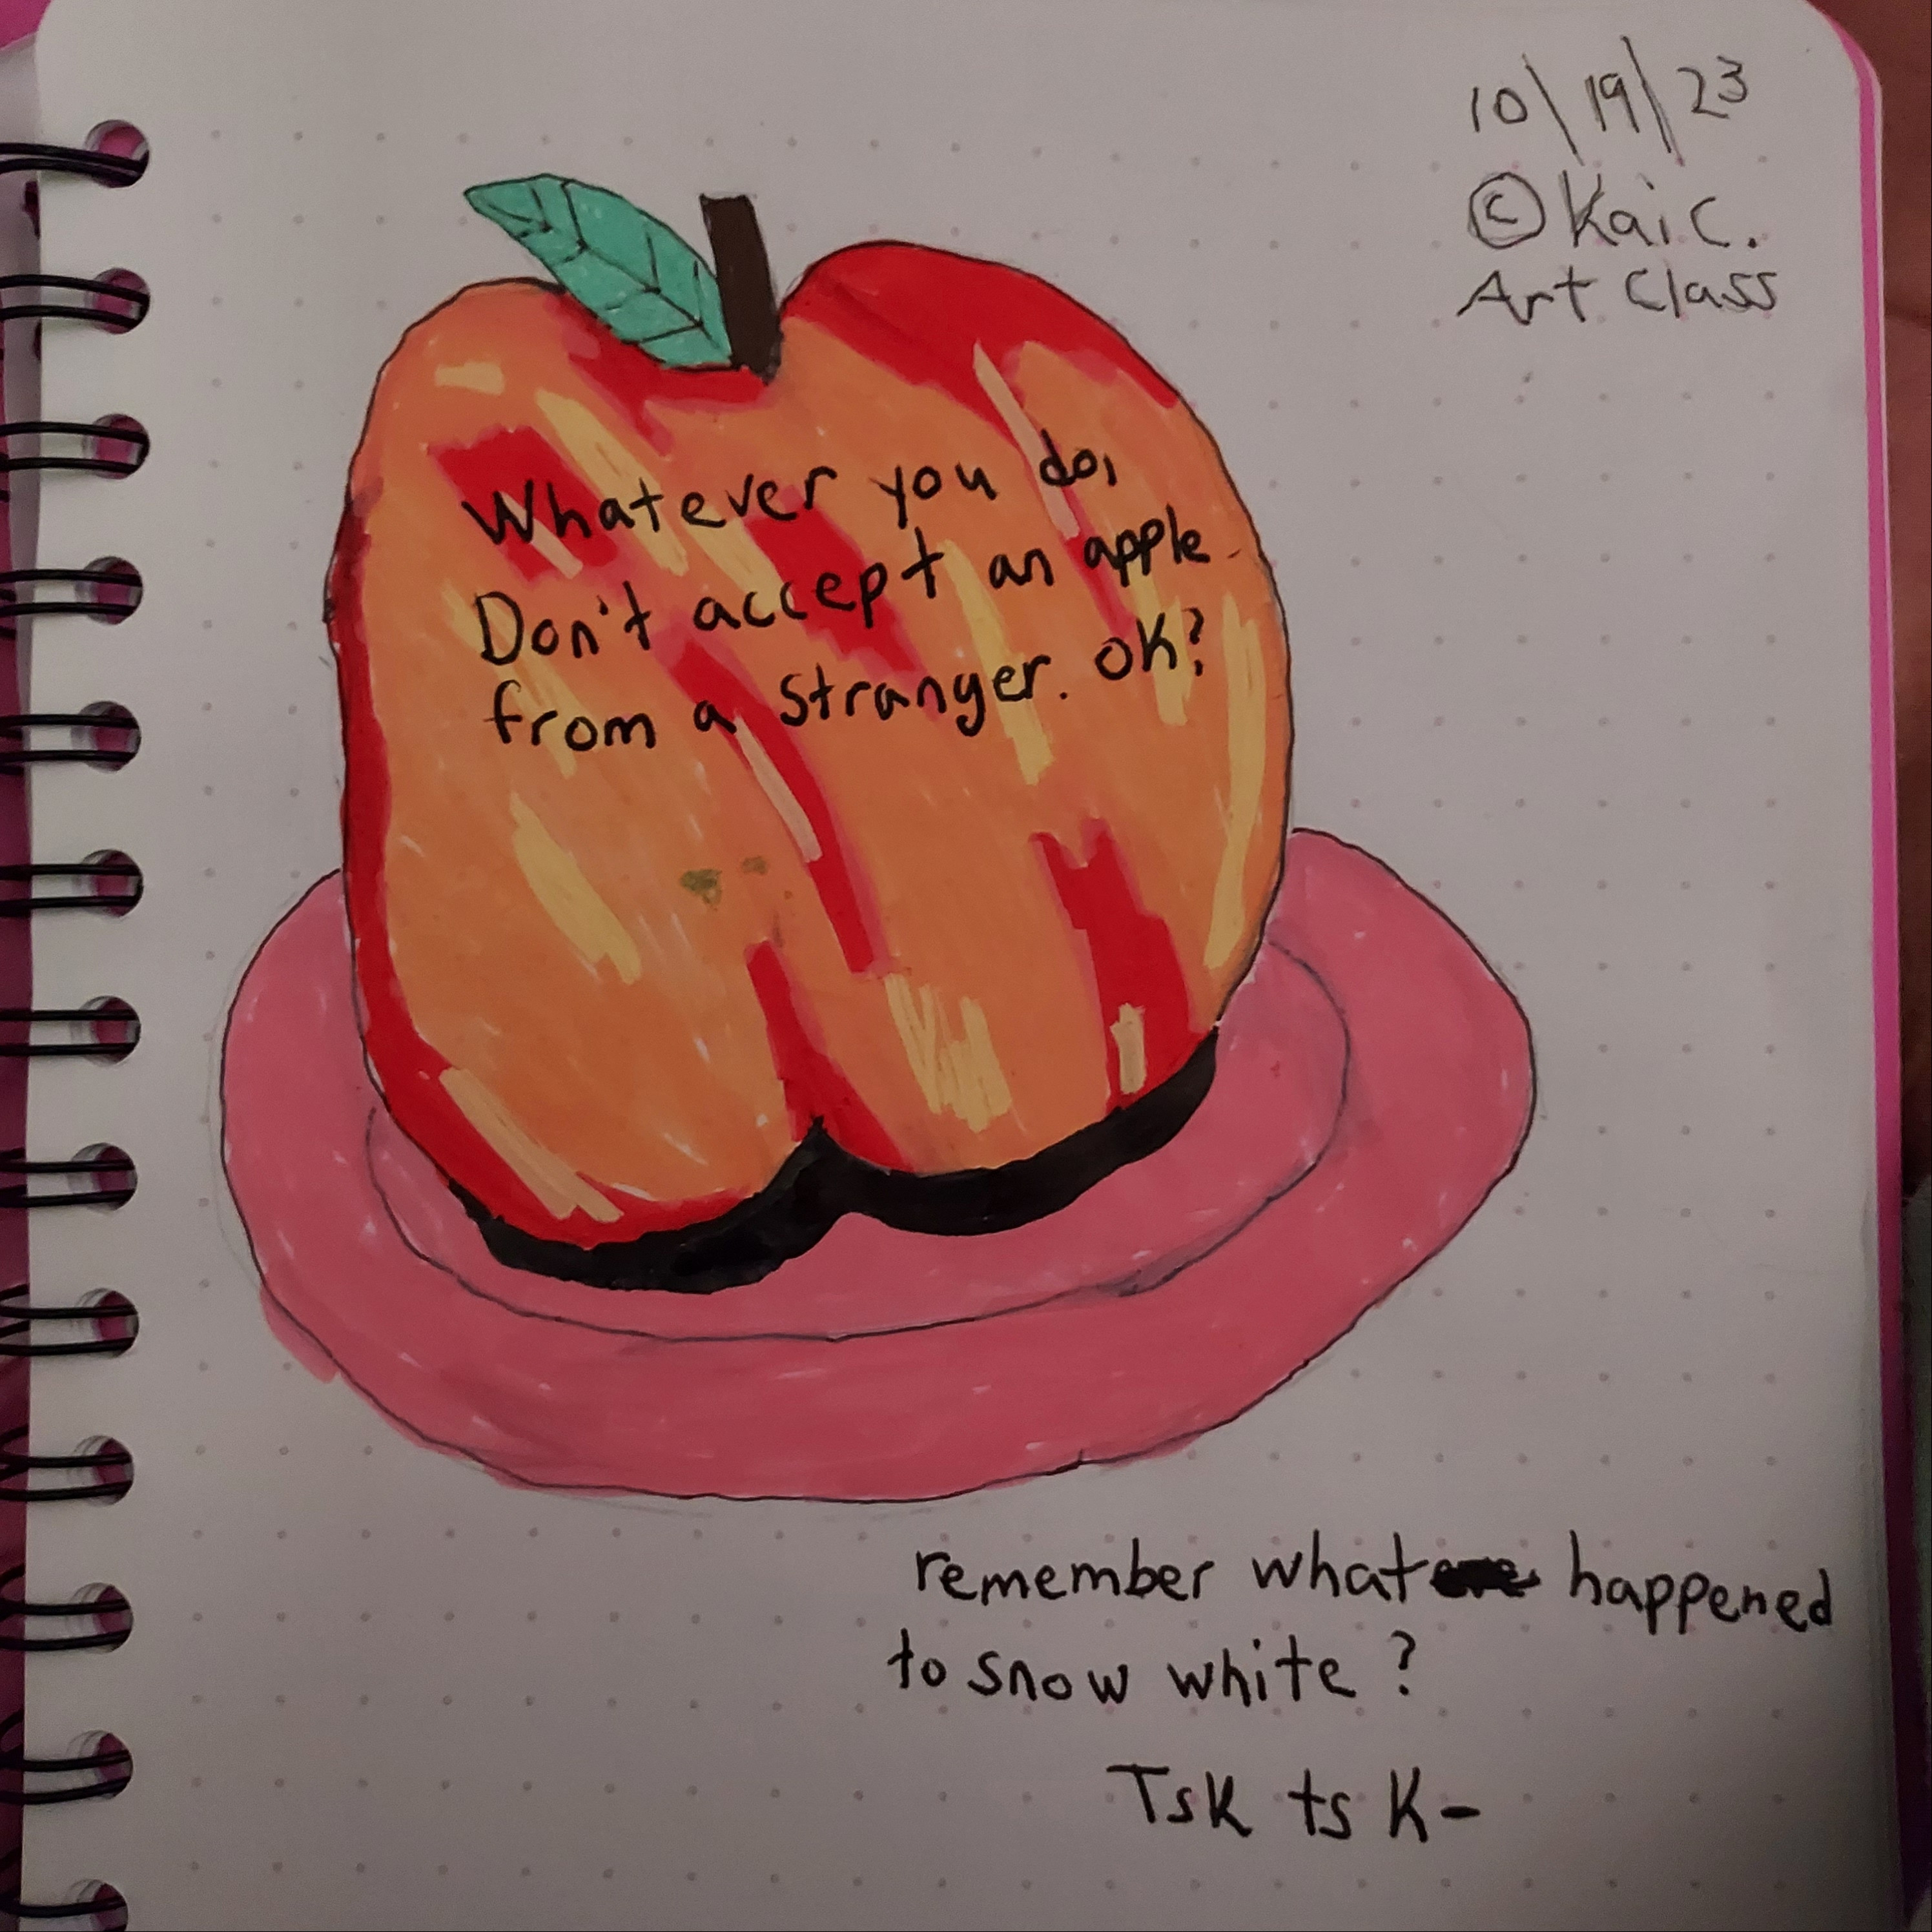 10\19\23
© Kai C.
Art Class
Whatever you do,
Don't accept an apple
from a stranger. OK?
remember what happened
to snow white?
Tsk tsk-